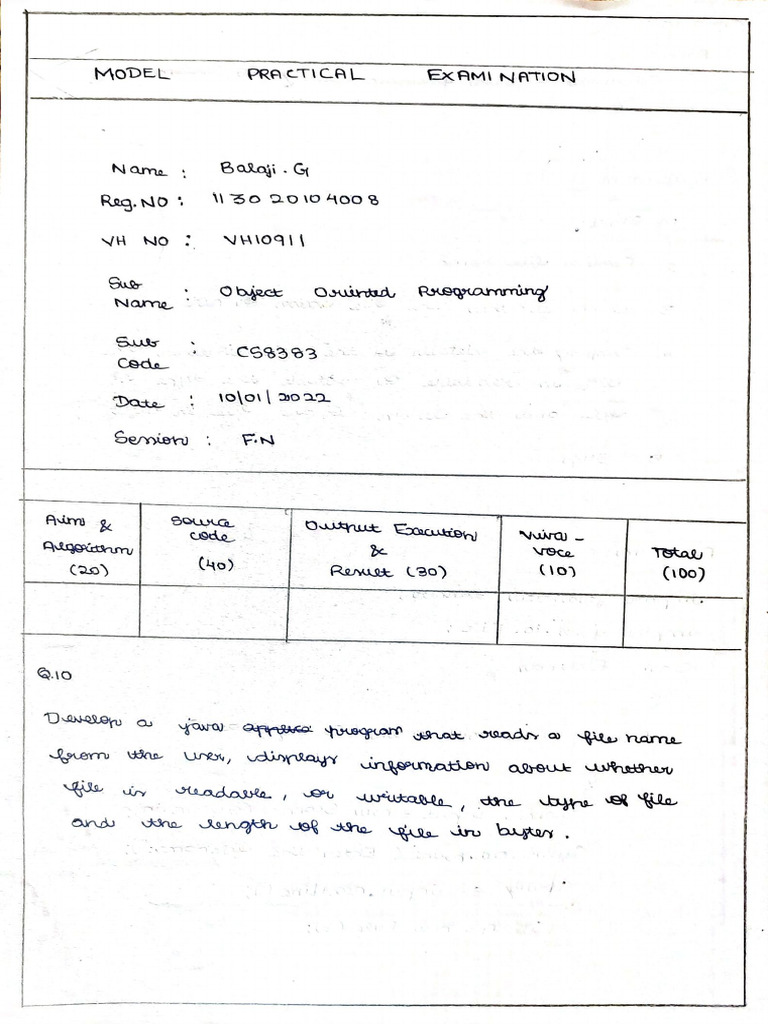 MODEL PRACTICAL EXAMINATION
Name : Balaji . G
Reg.NO : 113020104008
VH NO : VH10911
Sub Name : Object Oriented Programming
Sub Code : CS8383
Date : 10/01/2022
Session : F.N
Aim & Algorithm (20)
Source code (40)
Output Execution & Result (30)
Viva - voce (10)
Total (100)
Q.10
Develop a java program that reads a file name
from the user, displays information about whether
file is readable, or writable, the type of file
and the length of the file in bytes.